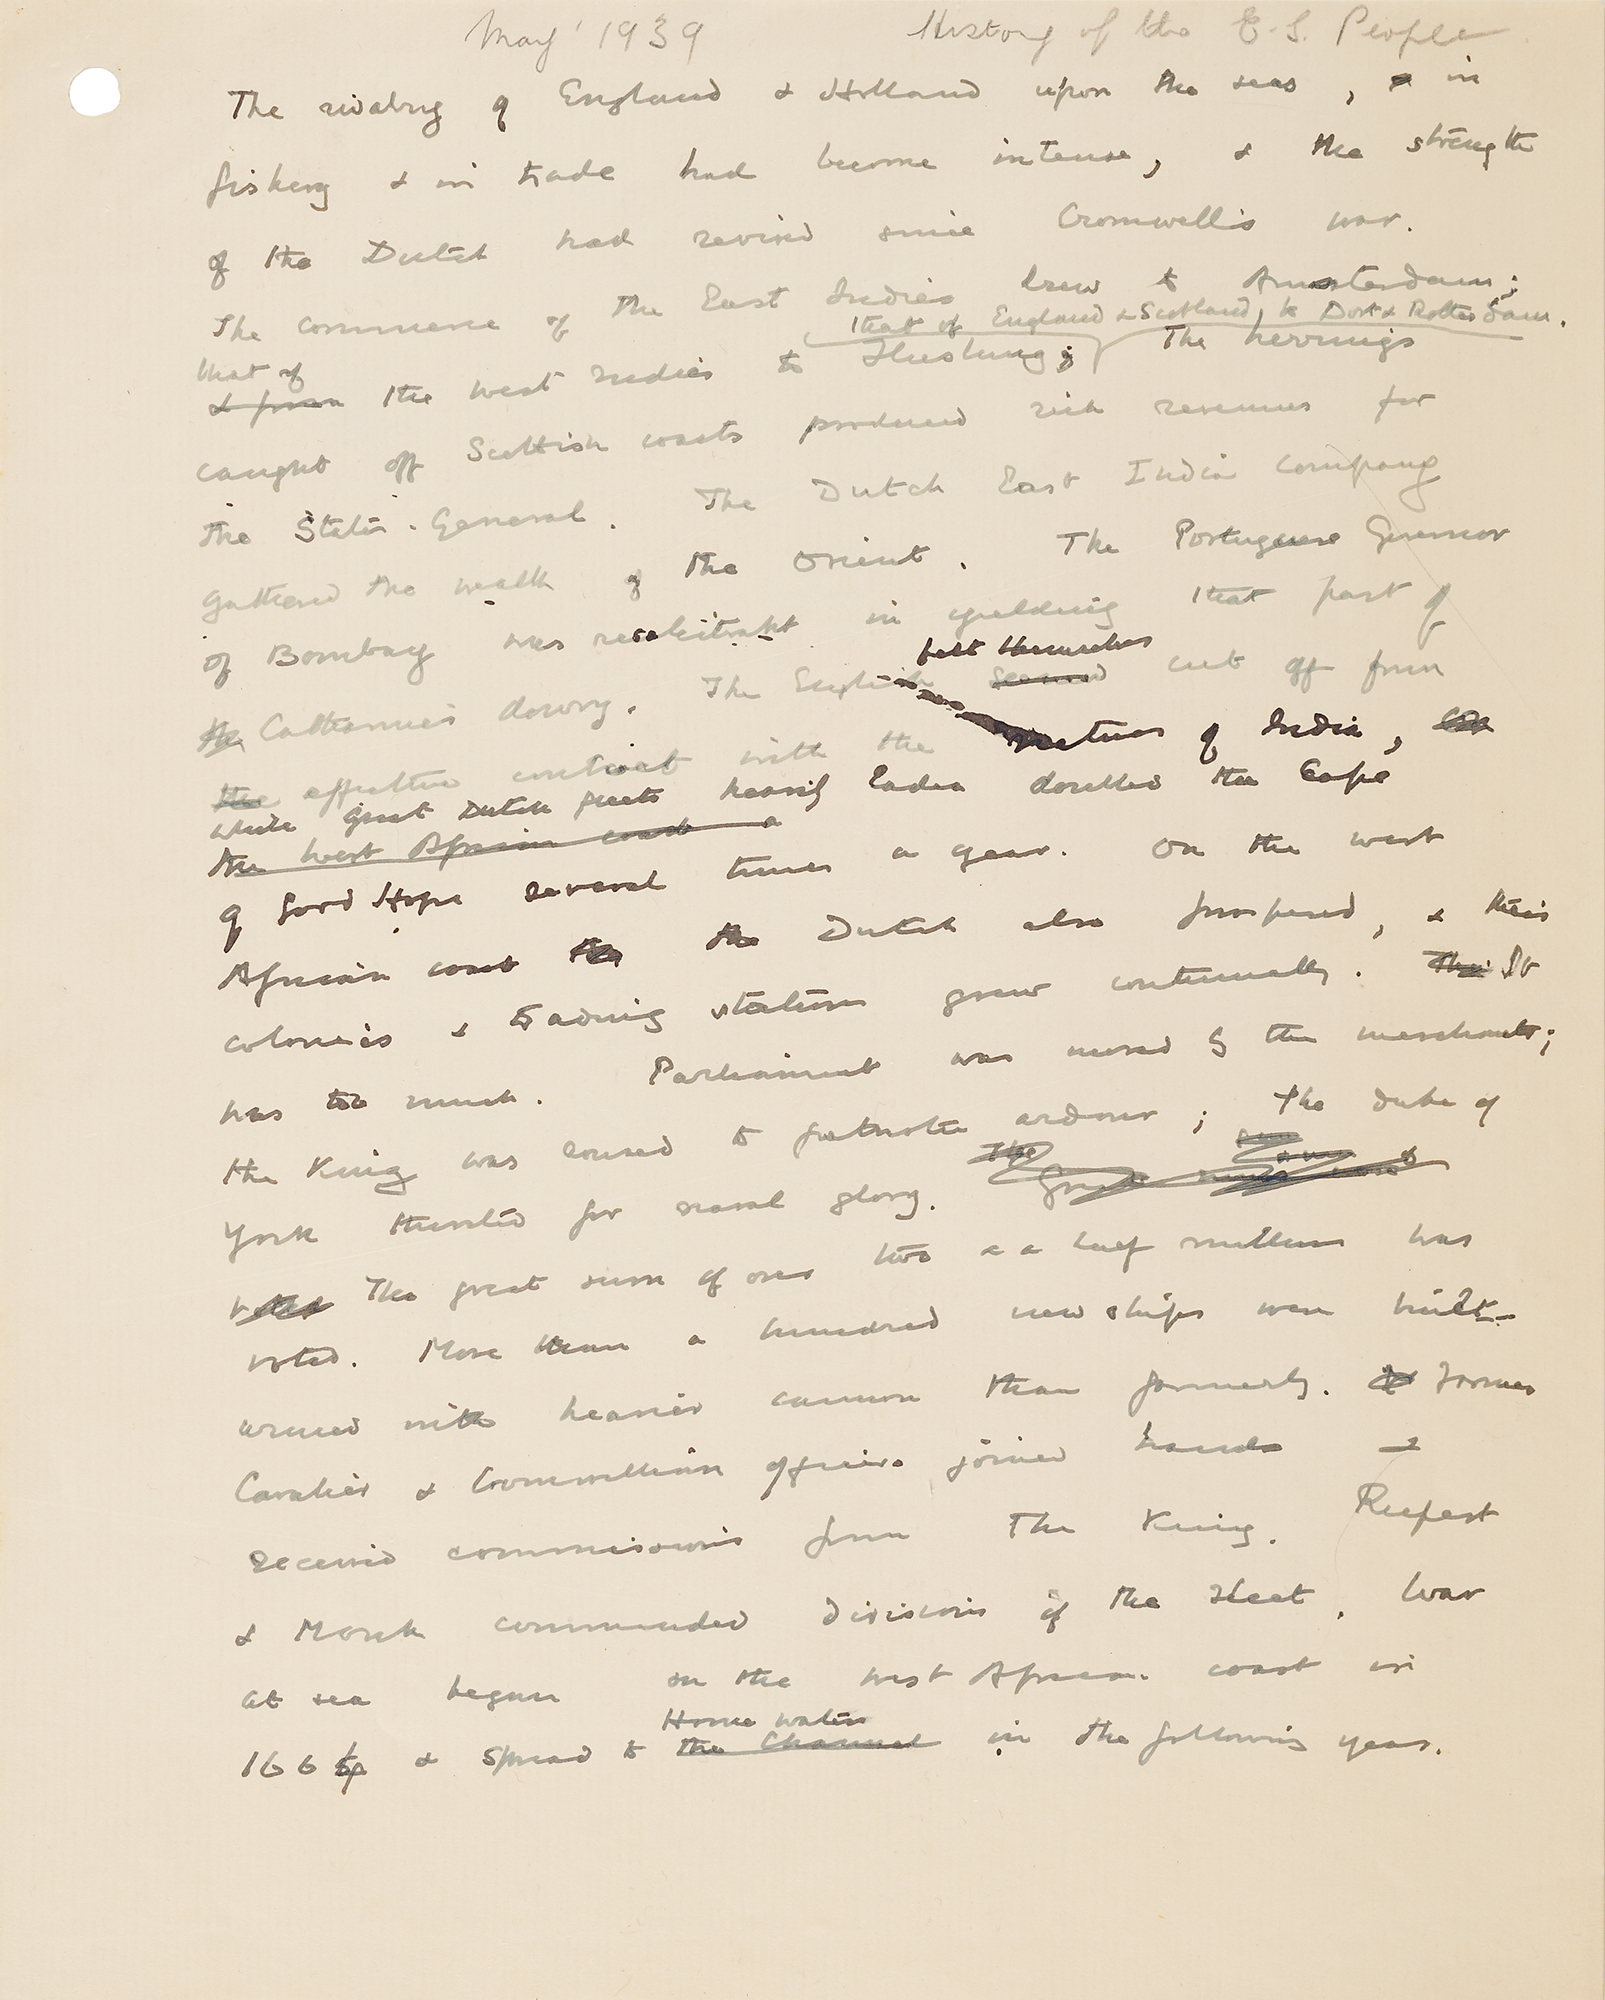 May 1939 History of the E.S. People
The rivalry of England & Holland upon the seas, & in
fishery & in trade had become intense, & the strength
of the Dutch had revived since Cromwell's war.
The commerce of the East Indies drew to Amsterdam;
that of England & Scotland, to Dort & Rotterdam.
that of
& from the West Indies to Flushing; The herrings
caught off Scottish coasts produced rich revenues for
the States-General. The Dutch East India Company
gathered the wealth of the Orient. The Portuguese Governor
of Bombay was recalcitrant in yielding that part of
felt themselves
the Catherine's dowry. The English seemed cut off from
the effective contact with the of India,
while great Dutch fleets heavily laden doubled the Cape
the West African coast a
of Good Hope several times a year. On the west
African coast the the Dutch also prospered, & their
colonies & trading stations grew continually. This It
was too much. Parliament was moved by the merchants;
the King was roused to patriotic ardour; the Duke of
York thirsted for naval glory. The Great
voted The great sum of over two & a half millions was
voted. More than a hundred new ships were built
armed with heavier cannon than formerly. Former
Cavalier & Cromwellian officers joined hands &
received commissions from the King. Rupert
& Monk commanded divisions of the fleet. War
at sea began on the west African coast in
Home waters
1664 & spread to the Channel in the following year.